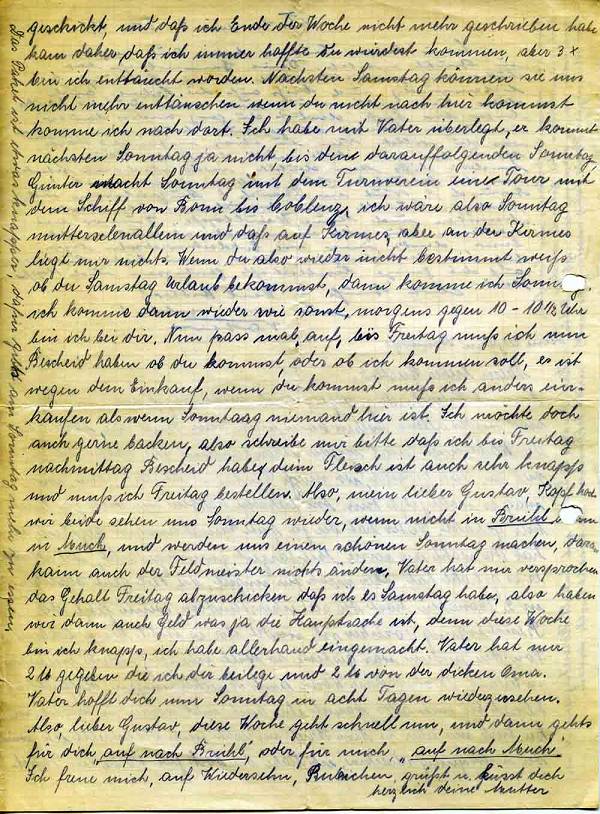 geschickt, und daß ich Ende der Woche nicht mehr geschrieben habe
kam daher, daß ich immer hoffte du würdest kommen, aber 3 x
bin ich enttäuscht worden. Nächsten Samstag können sie uns
nicht mehr enttäuschen wenn du nicht nach hier kommst
komme ich nach dort. Ich habe mit Vater überlegt, er kommt
nächsten Sonntag ja nicht, bis den darauffolgenden Sonntag,
Günter macht Sonntag mit dem Turnverein eine Tour mit
dem Schiff von Bonn bis Coblenz, ich wäre also Sonntag
mutterselenallein und daß auf Kirmes, aber an der Kirmes
liegt mir nichts. Wenn du also wieder nicht bestimmt weiß
ob du Samstag Urlaub bekommst, dann komme ich Sonntag.
ich komme dann wieder wie sonst, morgens gegen 10 - 10½ Uhr
bin ich bei dir. Nun pass mal auf, bis Freitag muß ich nun
Bescheid haben ob du kommst, oder ob ich kommen soll, es ist
wegen dem Einkauf, wenn du kommst muß ich anders ein-
kaufen als wenn Sonntaag niemand hier ist. Ich möchte doch
auch gerne backen, also schreibe mir bitte daß ich bis Freitag
nachmittag Bescheid habe, denn Fleisch ist auch sehr knapps
und muß ich Freitag bestellen. Also, mein lieber Gustav, Kopf hoch
wir beide sehen uns Sonntag wieder, wenn nicht in Brühl
in Much, und werden uns einen schönen Sonntag machen, daran
kann auch der Feldmeister nichts ändern. Vater hat mir versprochen
das Gehalt Freitag abzuschicken daß ich es Samstag habe, also haben
wir dann auch Geld was ja die Hauptsache ist, denn diese Woche
bin ich knapps, ich habe allerhand eingemacht. Vater hat mir
2 gegeben die ich dir beilege und 2 von der dicken Oma.
Vater hofft dich nun Sonntag in acht Tagen wiederzusehen.
Also, lieber Gustav, diese Woche geht schnell um, und dann gehts
für dich „auf nach Brühl", oder für mich, „auf nach Much"
Ich freue mich, auf Wiedersehn, grüßt u. küsst dich
herzlich deine Mutter
Das Paket ist etwas knapper, dafür gibts am Sonntag mehr zu essen